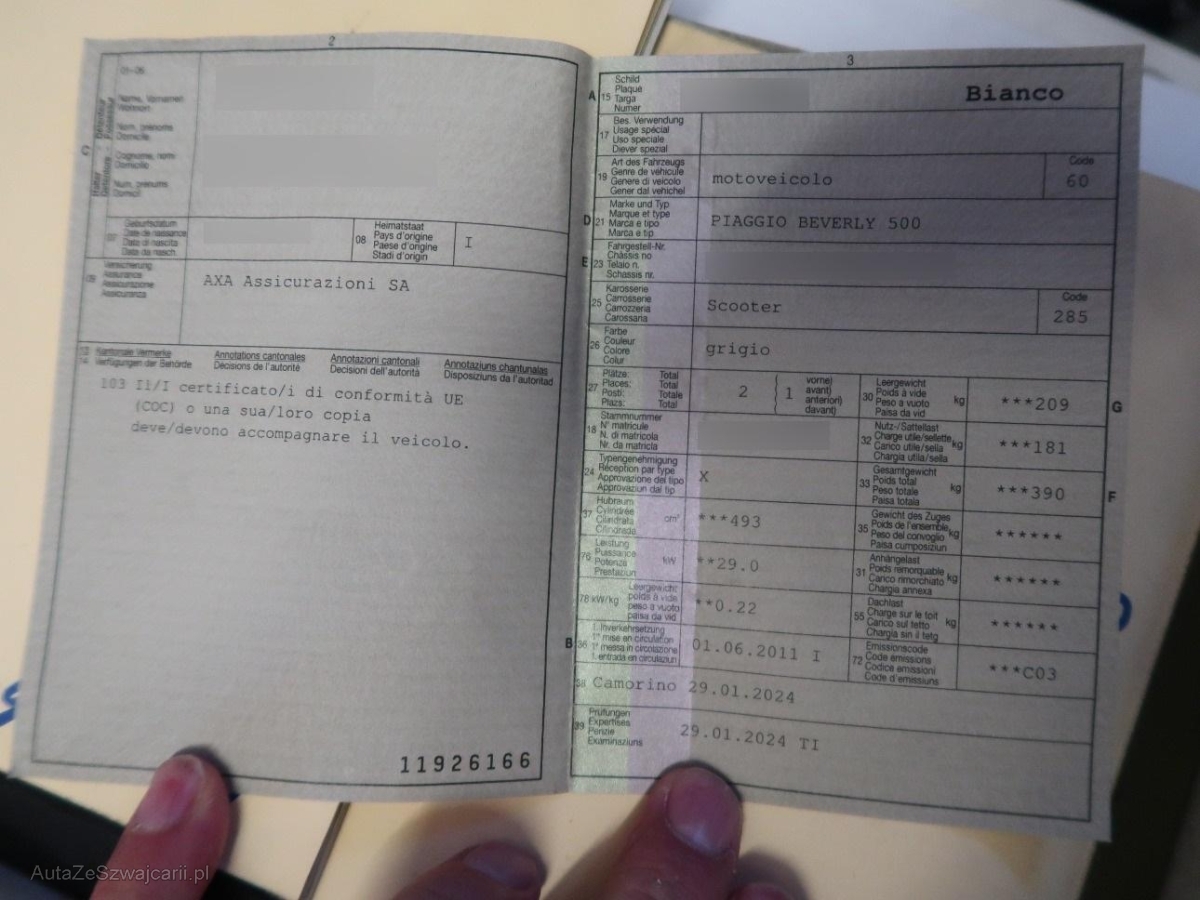 2
01-06
Name, Vornamen
Wohnort
Nom, prénoms
Domicile
Cognome, nomi
Domicilio
Num, prenums
Domicil
C
07
Geburtsdatum
Date de naissance
Data di nascita
Data da nasch.
08
Heimatstaat
Pays d'origine
Paese d'origine
Stadi d'origin
I
09
Versicherung
Assurance
Assicurazione
Assicuranza
AXA Assicurazioni SA
13
14
Kantonale Vermerke
Verfügungen der Behörde
Annotations cantonales
Décisions de l'autorité
Annotazioni cantonali
Decisioni dell'autorità
Annotaziuns chantunalas
Disposiziuns da l'autoritad
103 Il/I certificato/i di conformità UE
(COC) o una sua/loro copia
deve/devono accompagnare il veicolo.
11926166
3
A
15
Schild
Plaque
Targa
Numer
Bianco
17
Bes. Verwendung
Usage spécial
Uso speciale
Diever spezial
19
Art des Fahrzeugs
Genre de véhicule
Genere di veicolo
Gener dal vehichel
motoveicolo
Code
60
D
21
Marke und Typ
Marque et type
Marca e tipo
Marca e tip
PIAGGIO BEVERLY 500
E
23
Fahrgestell-Nr.
Châssis no
Telaio n.
Schassis nr.
25
Karosserie
Carrosserie
Carrozzeria
Carossaria
Scooter
Code
285
26
Farbe
Couleur
Colore
Colur
grigio
27
Plätze: Total
Places: Total
Posti: Totale
Plazs: Total
2
1
vorne)
avant)
anteriori)
davant)
30
Leergewicht
Poids à vide
Peso a vuoto
Paisa da vid
kg
***209
G
18
Stammnummer
N° matricule
N. di matricola
Nr. da matricla
32
Nutz-/Sattellast
Charge utile/sellette
Carico utile/sella
Chargia utila/sella
kg
***181
24
Typengenehmigung
Réception par type
Approvazione del tipo
Approvaziun dal tip
X
33
Gesamtgewicht
Poids total
Peso totale
Paisa totala
kg
***390
F
37
Hubraum
Cylindrée
Cilindrata
Cilindrada
cm³
***493
35
Gewicht des Zuges
Poids de l'ensemble
Peso del convoglio
Paisa cumposiziun
kg
******
76
Leistung
Puissance
Potenza
Prestaziun
kW
**29.0
31
Anhängelast
Poids remorquable
Carico rimorchiato
Chargia annexa
kg
******
78
kW/kg
Leergewicht
poids à vide
peso a vuoto
paisa da vid
**0.22
55
Dachlast
Charge sur le toit
Carico sul tetto
Chargia sin il tetg
kg
******
B
36
1. Inverkehrsetzung
1re mise en circulation
1a messa in circolazione
1. entrada en circulaziun
01.06.2011 I
72
Emissionscode
Code émissions
Codice emissioni
Code d'emissiuns
***C03
38
Camorino 29.01.2024
39
Prüfungen
Expertises
Perizie
Examinaziuns
29.01.2024 TI
AutaZeSzwajcarii.pl